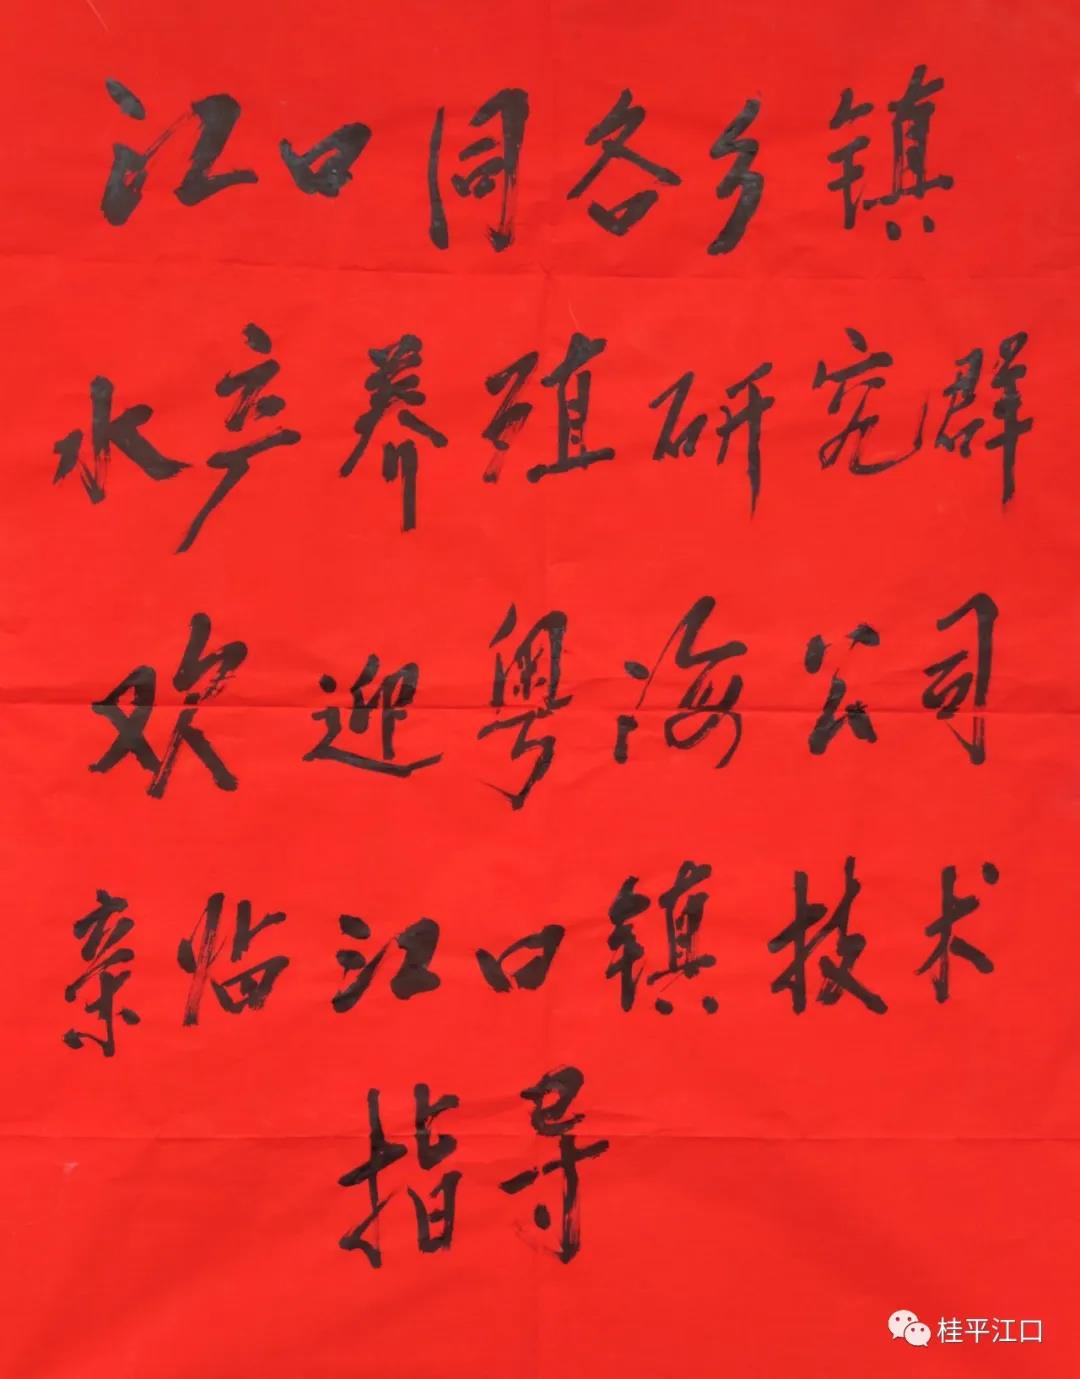 江口同各乡镇
水产养殖研究群
欢迎粤海公司
亲临江口镇技术
指导
桂平江口